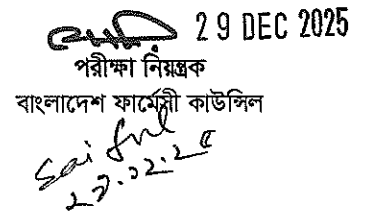 29 DEC 2025
পরীক্ষা নিয়ন্ত্রক
বাংলাদেশ ফার্মেসী কাউন্সিল
Saiful